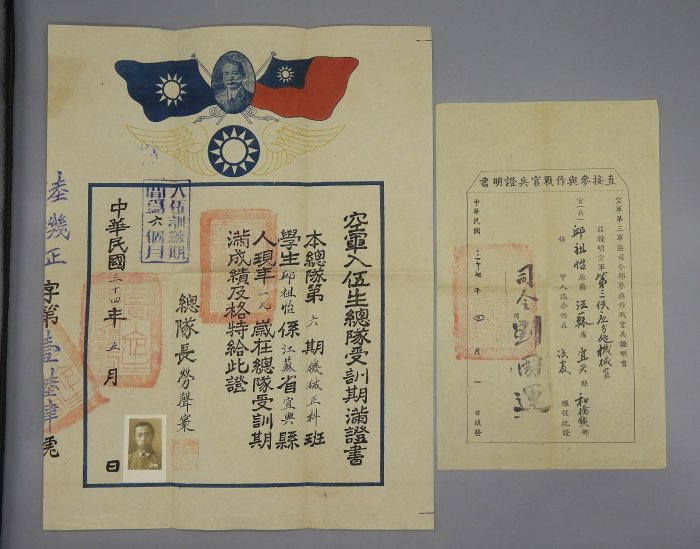 空軍入伍生總隊受訓期滿證書
本總隊第六期機械正科班
學生邱祖怡係江蘇省宜興縣
人現年 元歲在總隊受訓期
滿成績及格特給此證
總隊長勞聲寰
中華民國三十四年五月
日
入伍訓練期
間為六個月
陸機正字第壹陸肆號
直接參與作戰官兵證明書
空軍第三軍區司令部參與作戰官兵證明書
茲證明空軍第三供應 機械官
官(兵)邱祖怡原籍江蘇省宜興縣和橋鎮鄉
保 甲人迄今仍在 服役此證
司令劉國運
中華民國三十七年四月一日填發